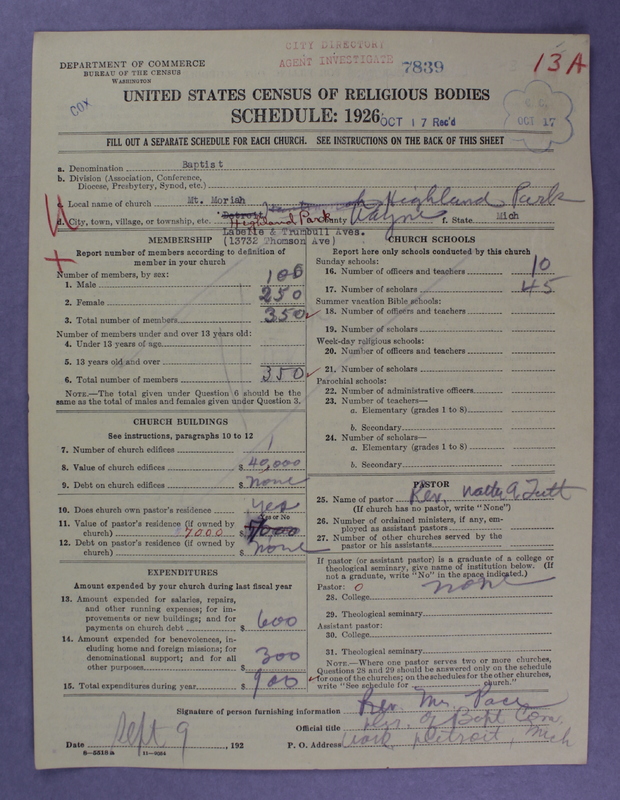 CITY DIRECTORY
AGENT INVESTIGATE 7839 13A
DEPARTMENT OF COMMERCE
BUREAU OF THE CENSUS
WASHINGTON
COX
UNITED STATES CENSUS OF RELIGIOUS BODIES
SCHEDULE: 1926 OCT 17 Rec'd
OCT 17
FILL OUT A SEPARATE SCHEDULE FOR EACH CHURCH. SEE INSTRUCTIONS ON THE BACK OF THIS SHEET
a. Denomination Baptist
b. Division (Association, Conference,
Diocese, Presbytery, Synod, etc.)
c. Local name of church Mt. Moriah Highland Park
d. City, town, village, or township, etc. Detroit Highland Park County Wayne f. State Mich
Labelle & Trumbull Aves.
(13732 Thomson Ave)
MEMBERSHIP
Report number of members according to definition of
member in your church
Number of members, by sex:
1. Male 100
2. Female 250
3. Total number of members 350
Number of members under and over 13 years old:
4. Under 13 years of age
5. 13 years old and over
6. Total number of members 350
NOTE.—The total given under Question 6 should be
same as the total of males and females given under Question 3.
CHURCH BUILDINGS
See instructions, paragraphs 10 to 12
7. Number of church edifices 1
8. Value of church edifices $ 40,000
9. Debt on church edifices $ none
10. Does church own pastor's residence yes
Yes or No
11. Value of pastor's residence (if owned by
church) 7000 $ 7000
12. Debt on pastor's residence (if owned by
church) $ none
EXPENDITURES
Amount expended by your church during last fiscal year
13. Amount expended for salaries, repairs,
and other running expenses; for im-
provements or new buildings; and for
payments on church debt $ 600
14. Amount expended for benevolences, in-
cluding home and foreign missions; for
denominational support; and for all
other purposes $ 300
15. Total expenditures during year $ 900
CHURCH SCHOOLS
Report here only schools conducted by this church
Sunday schools:
16. Number of officers and teachers 10
17. Number of scholars 45
Summer vacation Bible schools:
18. Number of officers and teachers
19. Number of scholars
Week-day religious schools:
20. Number of officers and teachers
21. Number of scholars
Parochial schools:
22. Number of administrative officers
23. Number of teachers—
a. Elementary (grades 1 to 8)
b. Secondary
24. Number of scholars—
a. Elementary (grades 1 to 8)
b. Secondary
PASTOR
25. Name of pastor Rev.
(If church has no pastor, write "None")
26. Number of ordained ministers, if any, em-
ployed as assistant pastors
27. Number of other churches served by the
pastor or his assistants
If pastor (or assistant pastor) is a graduate of a college or
theological seminary, give name of institution below. (If
not a graduate, write "No" in the space indicated.)
Pastor: 0 none
28. College
29. Theological seminary
Assistant pastor:
30. College
31. Theological seminary
NOTE.—Where one pastor serves two or more churches,
Questions 28 and 29 should be answered only on the schedule
for one of the churches; on the schedules for the other churches,
write "See schedule for church."
Signature of person furnishing information Rev. Pace
Official title of Bapt Com.
Date Sept 9, 192 P. O. Address Detroit, Mich
8-5518a 11-9584